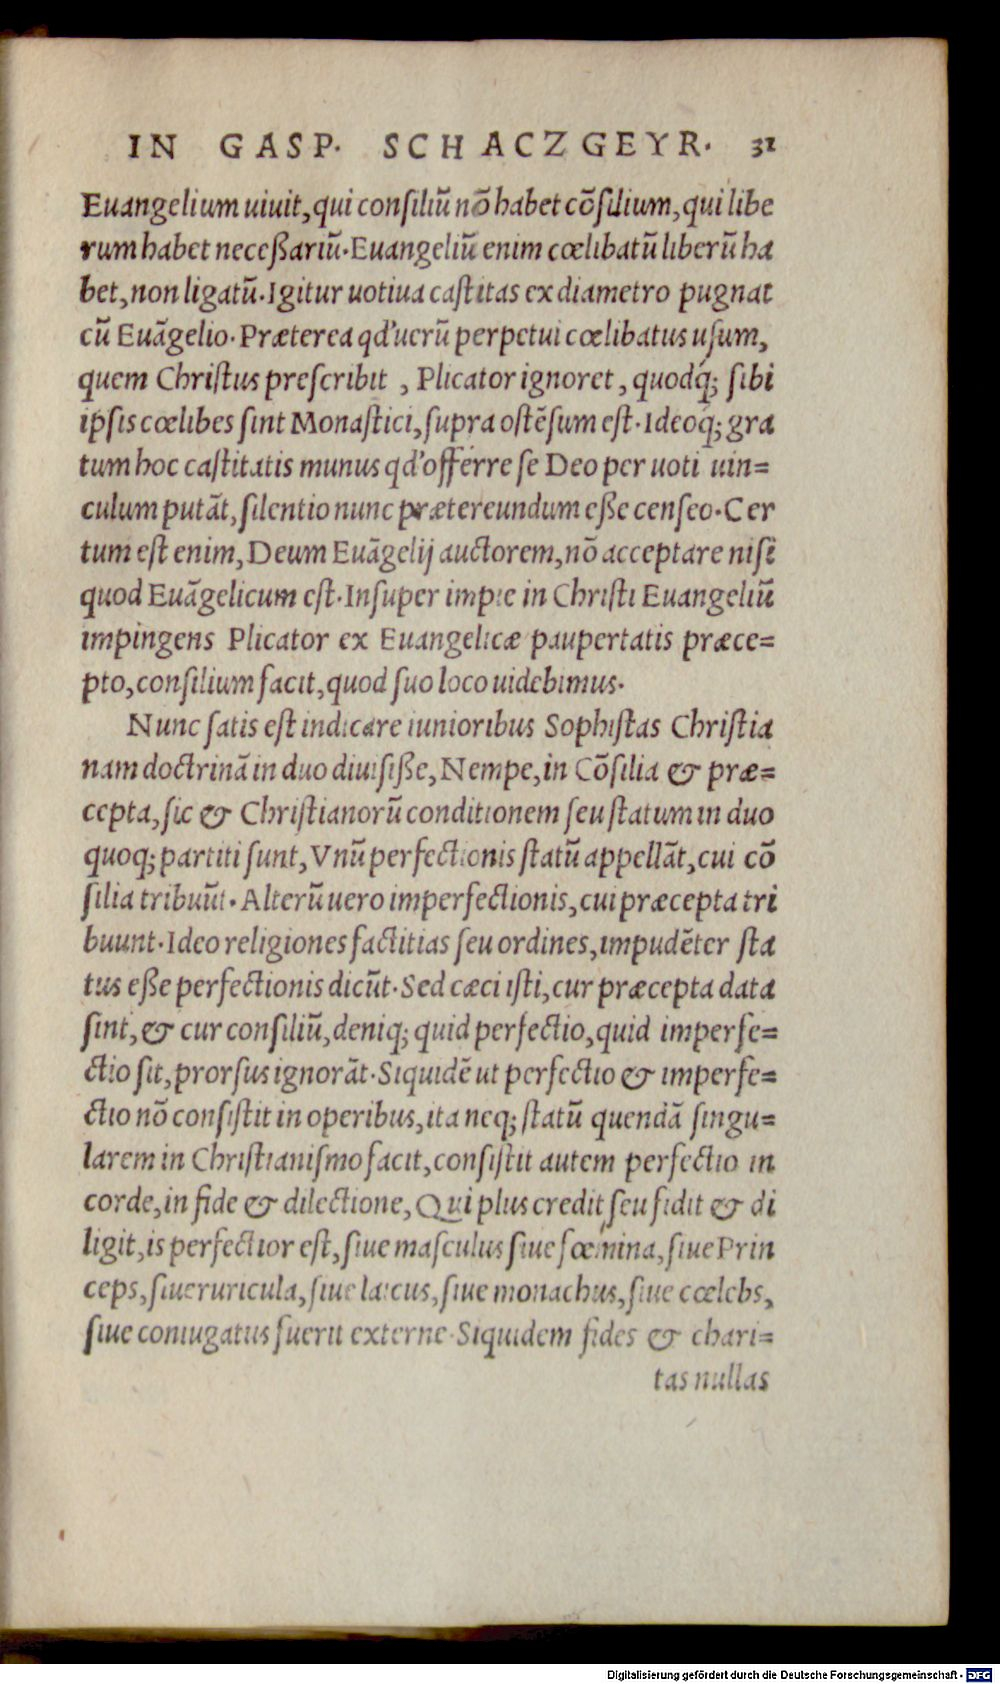 IN GASP. SCHACZGEYR. 31
Euangelium uiuit, qui consiliũ nõ habet cõsilium, qui libe
rum habet neceßariũ. Euangeliũ enim cœlibatũ liberũ ha
bet, non ligatũ. Igitur uotiua castitas ex diametro pugnat
cũ Euãgelio. Præterea qd' uerũ perpetui cœlibatus usum,
quem Christus prescribit , Plicator ignoret, quodq́; sibi
ipsis cœlibes sint Monastici, supra ostẽsum est. Ideoq́; gra
tum hoc castitatis munus qd' offerre se Deo per uoti uin=
culum putãt, silentio nunc prætereundum eße censeo. Cer
tum est enim, Deum Euãgelij auctorem, nõ acceptare nisi
quod Euãgelicum est. Insuper impie in Christi Euangeliũ
impingens Plicator ex Euangelicæ paupertatis præce=
pto, consilium facit, quod suo loco uidebimus.
Nunc satis est indicare iunioribus Sophistas Christia
nam doctrinã in duo diuisiße, Nempe, in Cõsilia & præ=
cepta, sic & Christianorũ conditionem seu statum in duo
quoq; partiti sunt, Vnũ perfectionis statũ appellãt, cui cõ
silia tribuũt. Alterũ uero imperfectionis, cui præcepta tri
buunt. Ideo religiones factitias seu ordines, impudẽter sta
tus eße perfectionis dicũt. Sed cæci isti, cur præcepta data
sint, & cur consiliũ, deniq; quid perfectio, quid imperfe=
ctio sit, prorsus ignorãt. Siquidẽ ut perfectio & imperfe=
ctio nõ consistit in operibus, ita neq; statũ quendã singu=
larem in Christianismo facit, consistit autem perfectio in
corde, in fide & dilectione, Qui plus credit seu fidit & di
ligit, is perfectior est, siue masculus siue fœmina, siue Prin
ceps, siue ruricula, siue laicus, siue monachus, siue cœlebs,
siue coniugatus fuerit externe. Siquidem fides & chari=
tas nullas
Digitalisierung gefördert durch die Deutsche Forschungsgemeinschaft - DFG